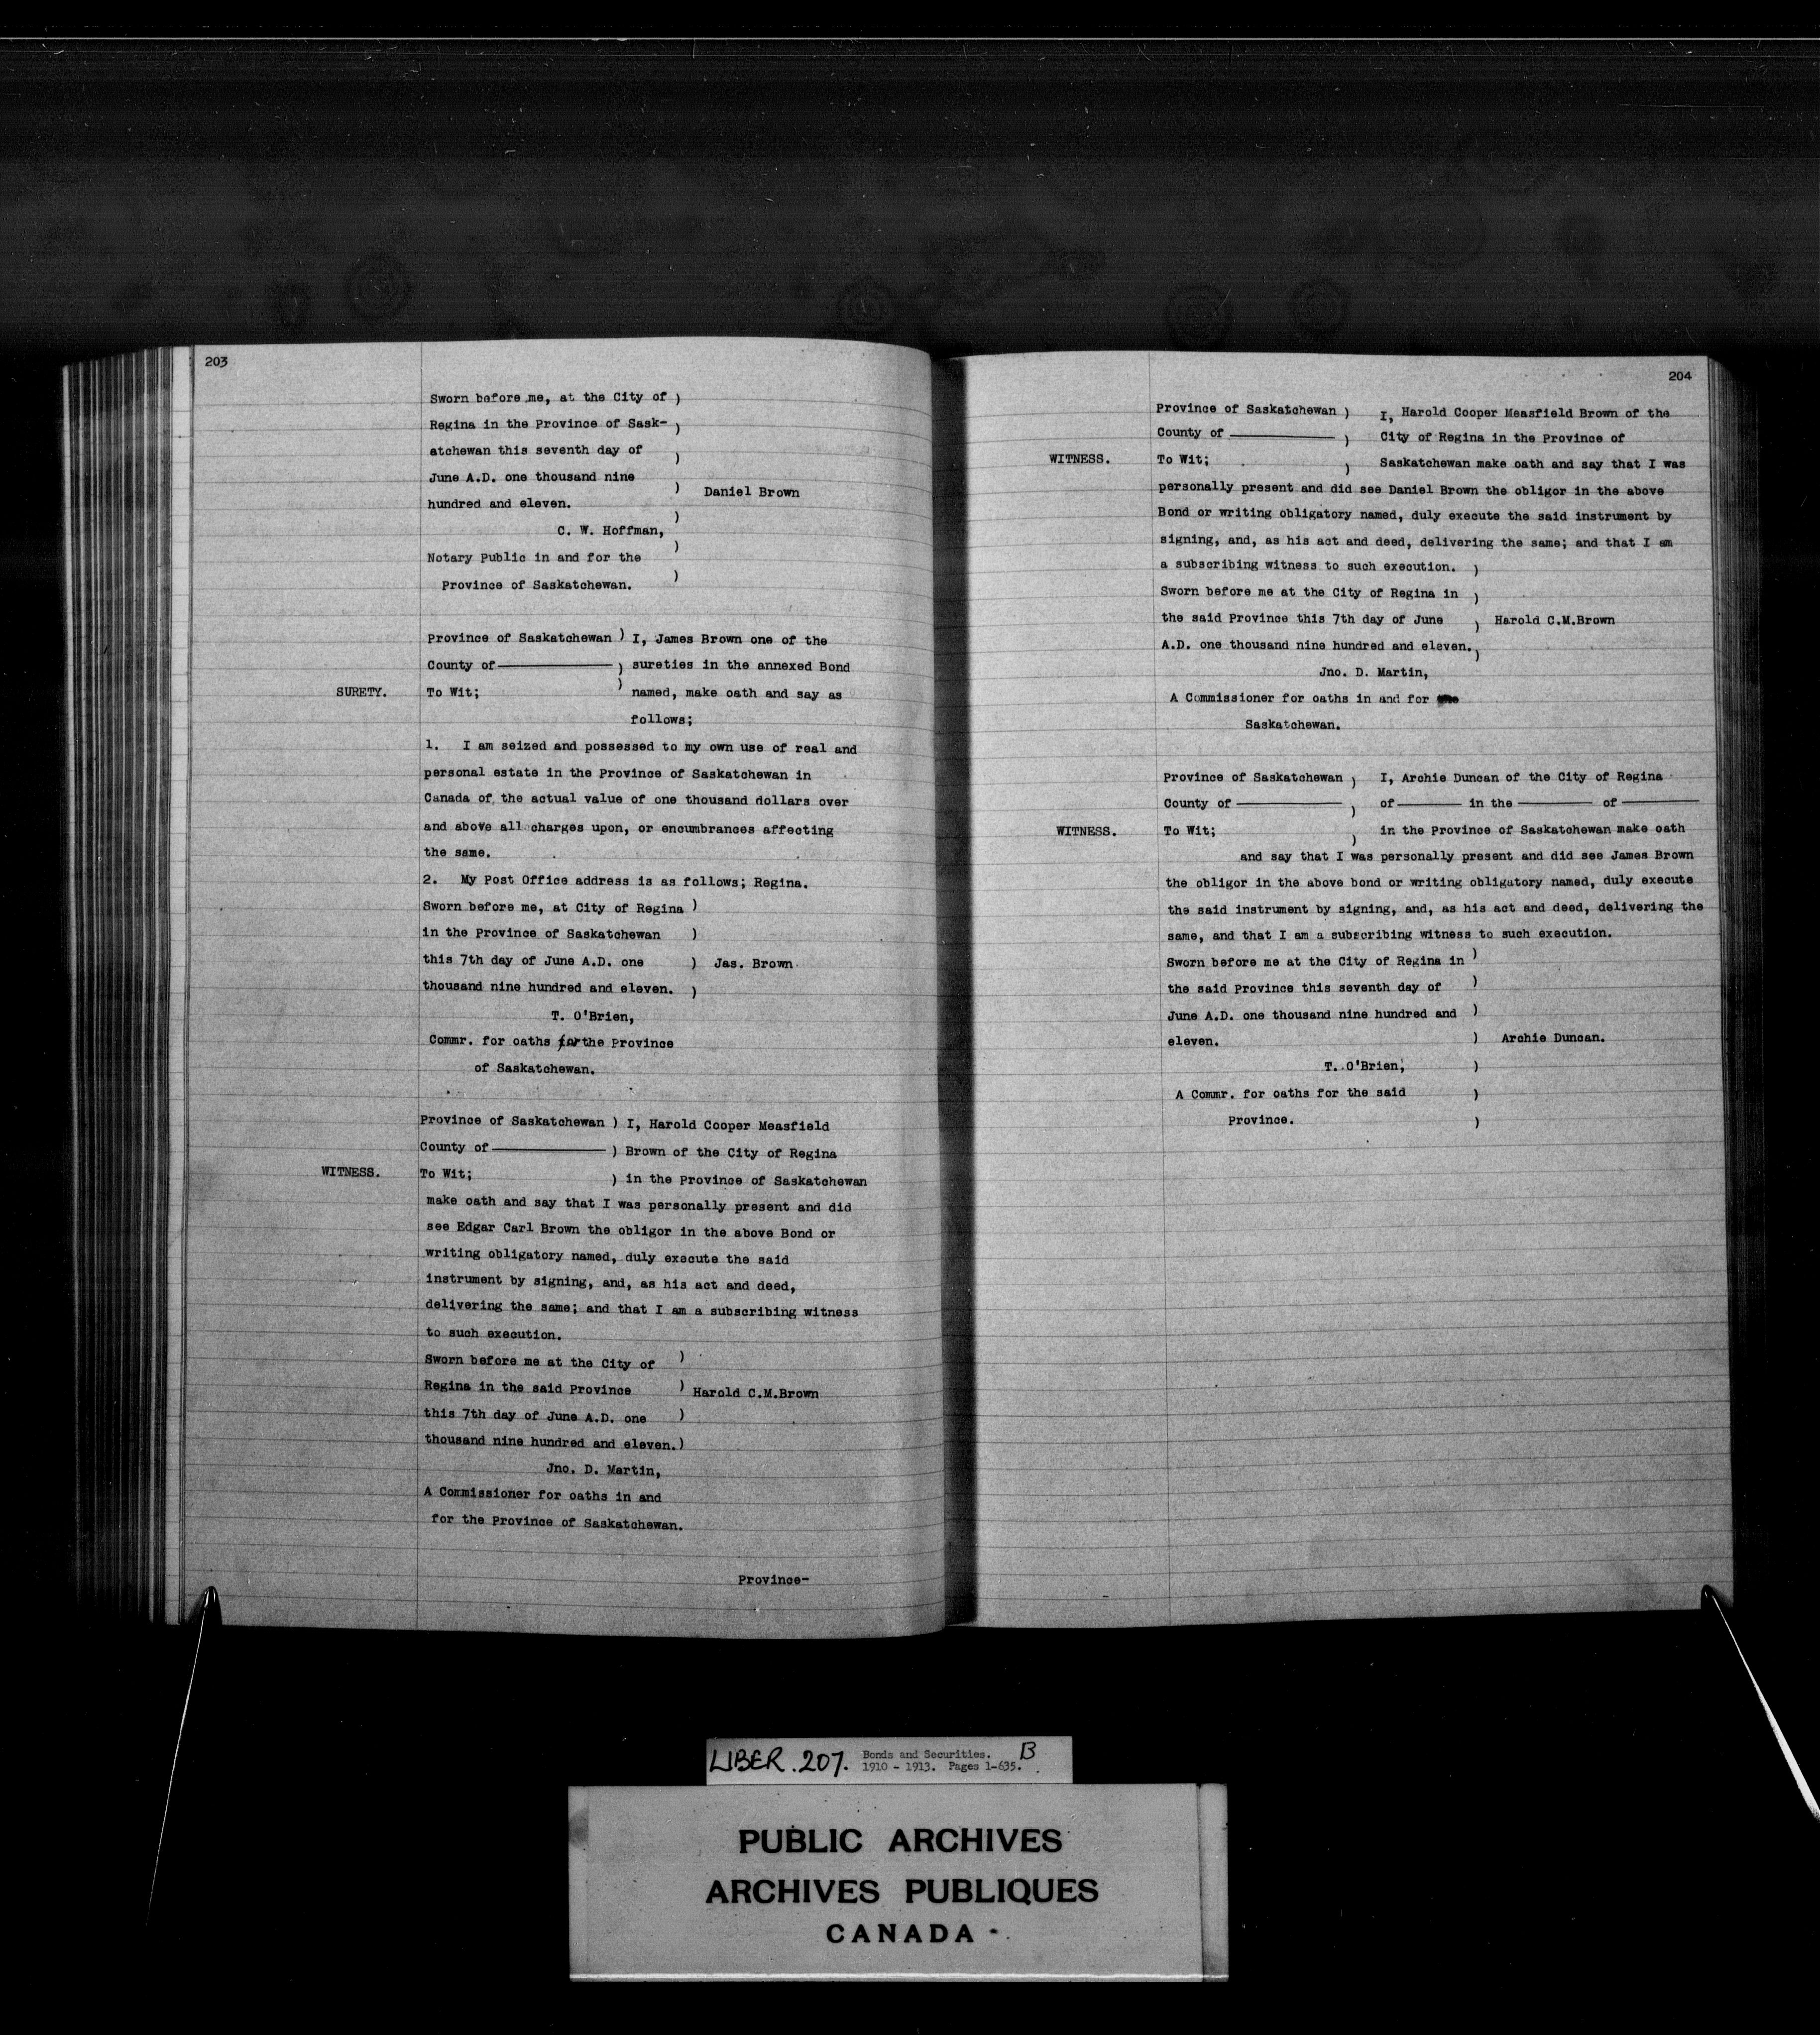 203
Sworn before me, at the City of )
Regina in the Province of Sask- )
atchewan this seventh day of )
June A.D. one thousand nine )
Daniel Brown
hundred and eleven. )
C. W. Hoffman, )
Notary Public in and for the )
Province of Saskatchewan.
Province of Saskatchewan ) I, James Brown one of the
County of ——— ) sureties in the annexed Bond
SURETY. To Wit; ) named, make oath and say as
follows;
1. I am seized and possessed to my own use of real and
personal estate in the Province of Saskatchewan in
Canada of the actual value of one thousand dollars over
and above all charges upon, or encumbrances affecting
the same.
2. My Post Office address is as follows; Regina.
Sworn before me, at City of Regina )
in the Province of Saskatchewan )
this 7th day of June A.D. one ) Jas. Brown
thousand nine hundred and eleven. )
T. O'Brien,
Commr. for oaths for the Province
of Saskatchewan.
Province of Saskatchewan ) I, Harold Cooper Measfield
County of ——— ) Brown of the City of Regina
WITNESS. To Wit; ) in the Province of Saskatchewan
make oath and say that I was personally present and did
see Edgar Carl Brown the obligor in the above Bond or
writing obligatory named, duly execute the said
instrument by signing, and, as his act and deed,
delivering the same; and that I am a subscribing witness
to such execution.
Sworn before me at the City of )
Regina in the said Province ) Harold C.M.Brown
this 7th day of June A.D. one )
thousand nine hundred and eleven.)
Jno. D. Martin,
A Commissioner for oaths in and
for the Province of Saskatchewan.
Province-
204
Province of Saskatchewan ) I, Harold Cooper Measfield Brown of the
County of ——— ) City of Regina in the Province of
WITNESS. To Wit; ) Saskatchewan make oath and say that I was
personally present and did see Daniel Brown the obligor in the above
Bond or writing obligatory named, duly execute the said instrument by
signing, and, as his act and deed, delivering the same; and that I am
a subscribing witness to such execution. )
Sworn before me at the City of Regina in )
the said Province this 7th day of June ) Harold C.M.Brown
A.D. one thousand nine hundred and eleven.)
Jno. D. Martin,
A Commissioner for oaths in and for
Saskatchewan.
Province of Saskatchewan ) I, Archie Duncan of the City of Regina
County of ——— ) of ——— in the ——— of ———
WITNESS. To Wit; ) in the Province of Saskatchewan make oath
and say that I was personally present and did see James Brown
the obligor in the above bond or writing obligatory named, duly execute
the said instrument by signing, and, as his act and deed, delivering the
same, and that I am a subscribing witness to such execution.
Sworn before me at the City of Regina in )
the said Province this seventh day of )
June A.D. one thousand nine hundred and )
eleven. ) Archie Duncan.
T. O'Brien, )
A Commr. for oaths for the said )
Province. )
LIBER. 207. Bonds and Securities. B
1910 - 1913. Pages 1-635.
PUBLIC ARCHIVES
ARCHIVES PUBLIQUES
CANADA